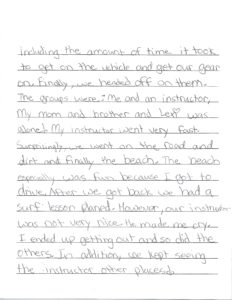 including the amount of time it took
to get on the vehicle and get our gear
on. Finally, we headed off on them.
The groups were: Me and an instructor,
My mom and brother and Lexi was
alone. My instructor went very fast.
Surprisingly, we went on the road and
dirt and finally the beach. The beach
especially was fun because I got to
drive. After we got back we had a
surf lesson planed. However, our instructor
was not very nice. He made me cry.
I ended up getting out and so did the
others. In addition, we kept seeing
the instructor other places!